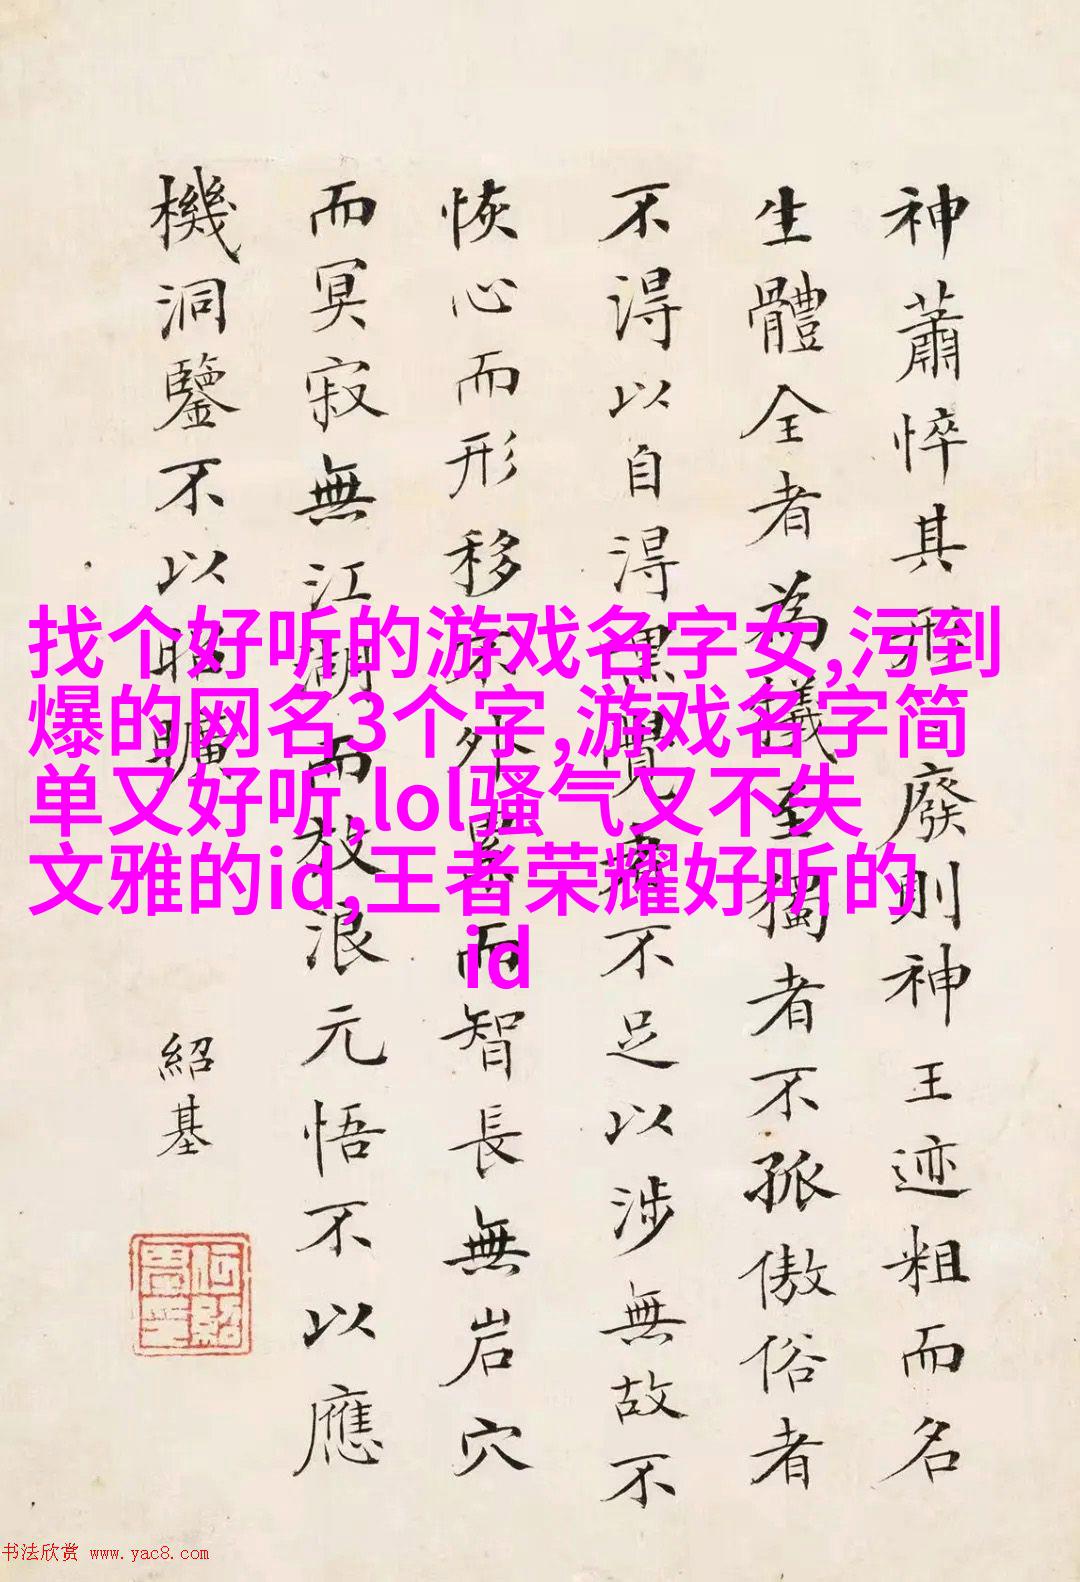 找个好听的游戏名字女,污到
爆的网名3个字,游戏名字简
单又好听,lol骚气又不失
文雅的id,王者荣耀好听的
id
神蕭悴其形廢則神王迹粗而名
生體全者為至獨者不孤傲俗者
不得以自得覺不足以涉無故不
恢心而形移外累而智長無岩穴
而冥寂無江湖而放浪元悟不以應
機洞鑒不以昭曠
紹基
书法欣赏 www.yac8.com